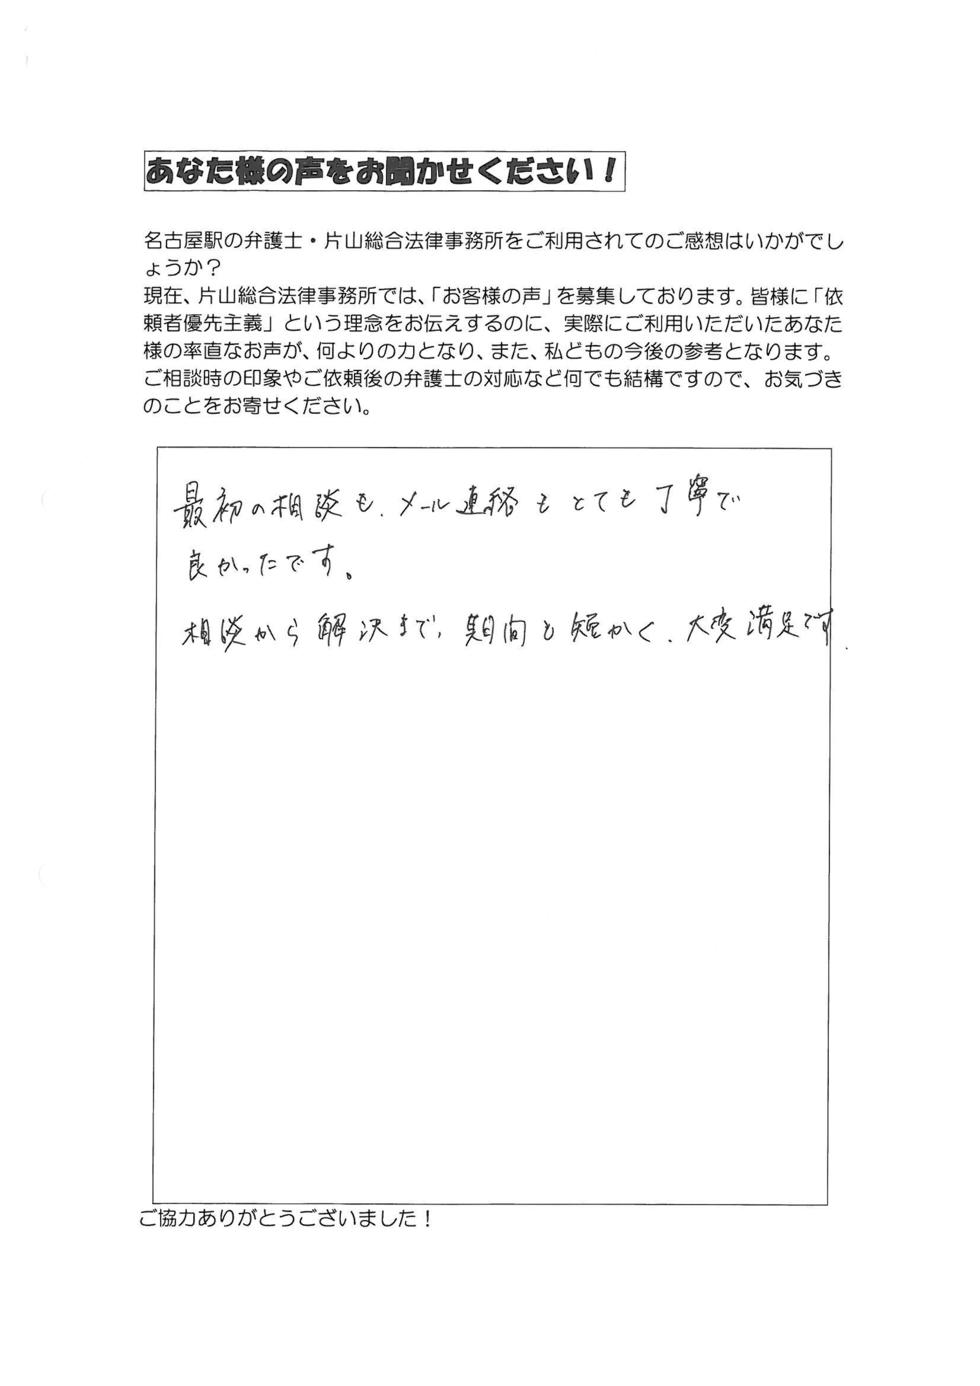 あなた様の声をお聞かせください！
名古屋駅の弁護士・片山総合法律事務所をご利用されてのご感想はいかがでし
ょうか？
現在、片山総合法律事務所では、「お客様の声」を募集しております。皆様に「依
頼者優先主義」という理念をお伝えするのに、実際にご利用いただいたあなた
様の率直なお声が、何よりの力となり、また、私どもの今後の参考となります。
ご相談時の印象やご依頼後の弁護士の対応など何でも結構ですので、お気づき
のことをお寄せください。
最初の相談も、メール連絡もとても丁寧で
良かったです。
相談から解決まで、期間も短かく、大変満足です.
ご協力ありがとうございました！